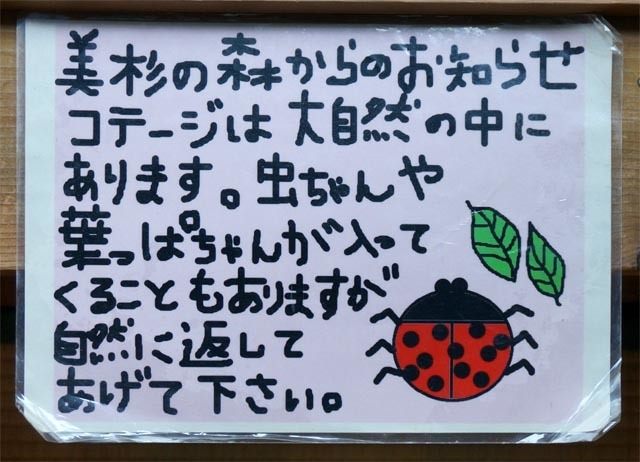 美杉の森からのお知らせ
コテージは大自然の中に
あります。虫ちゃんや
葉っぱちゃんが入って
くることもありますが
自然に返して
あげて下さい。